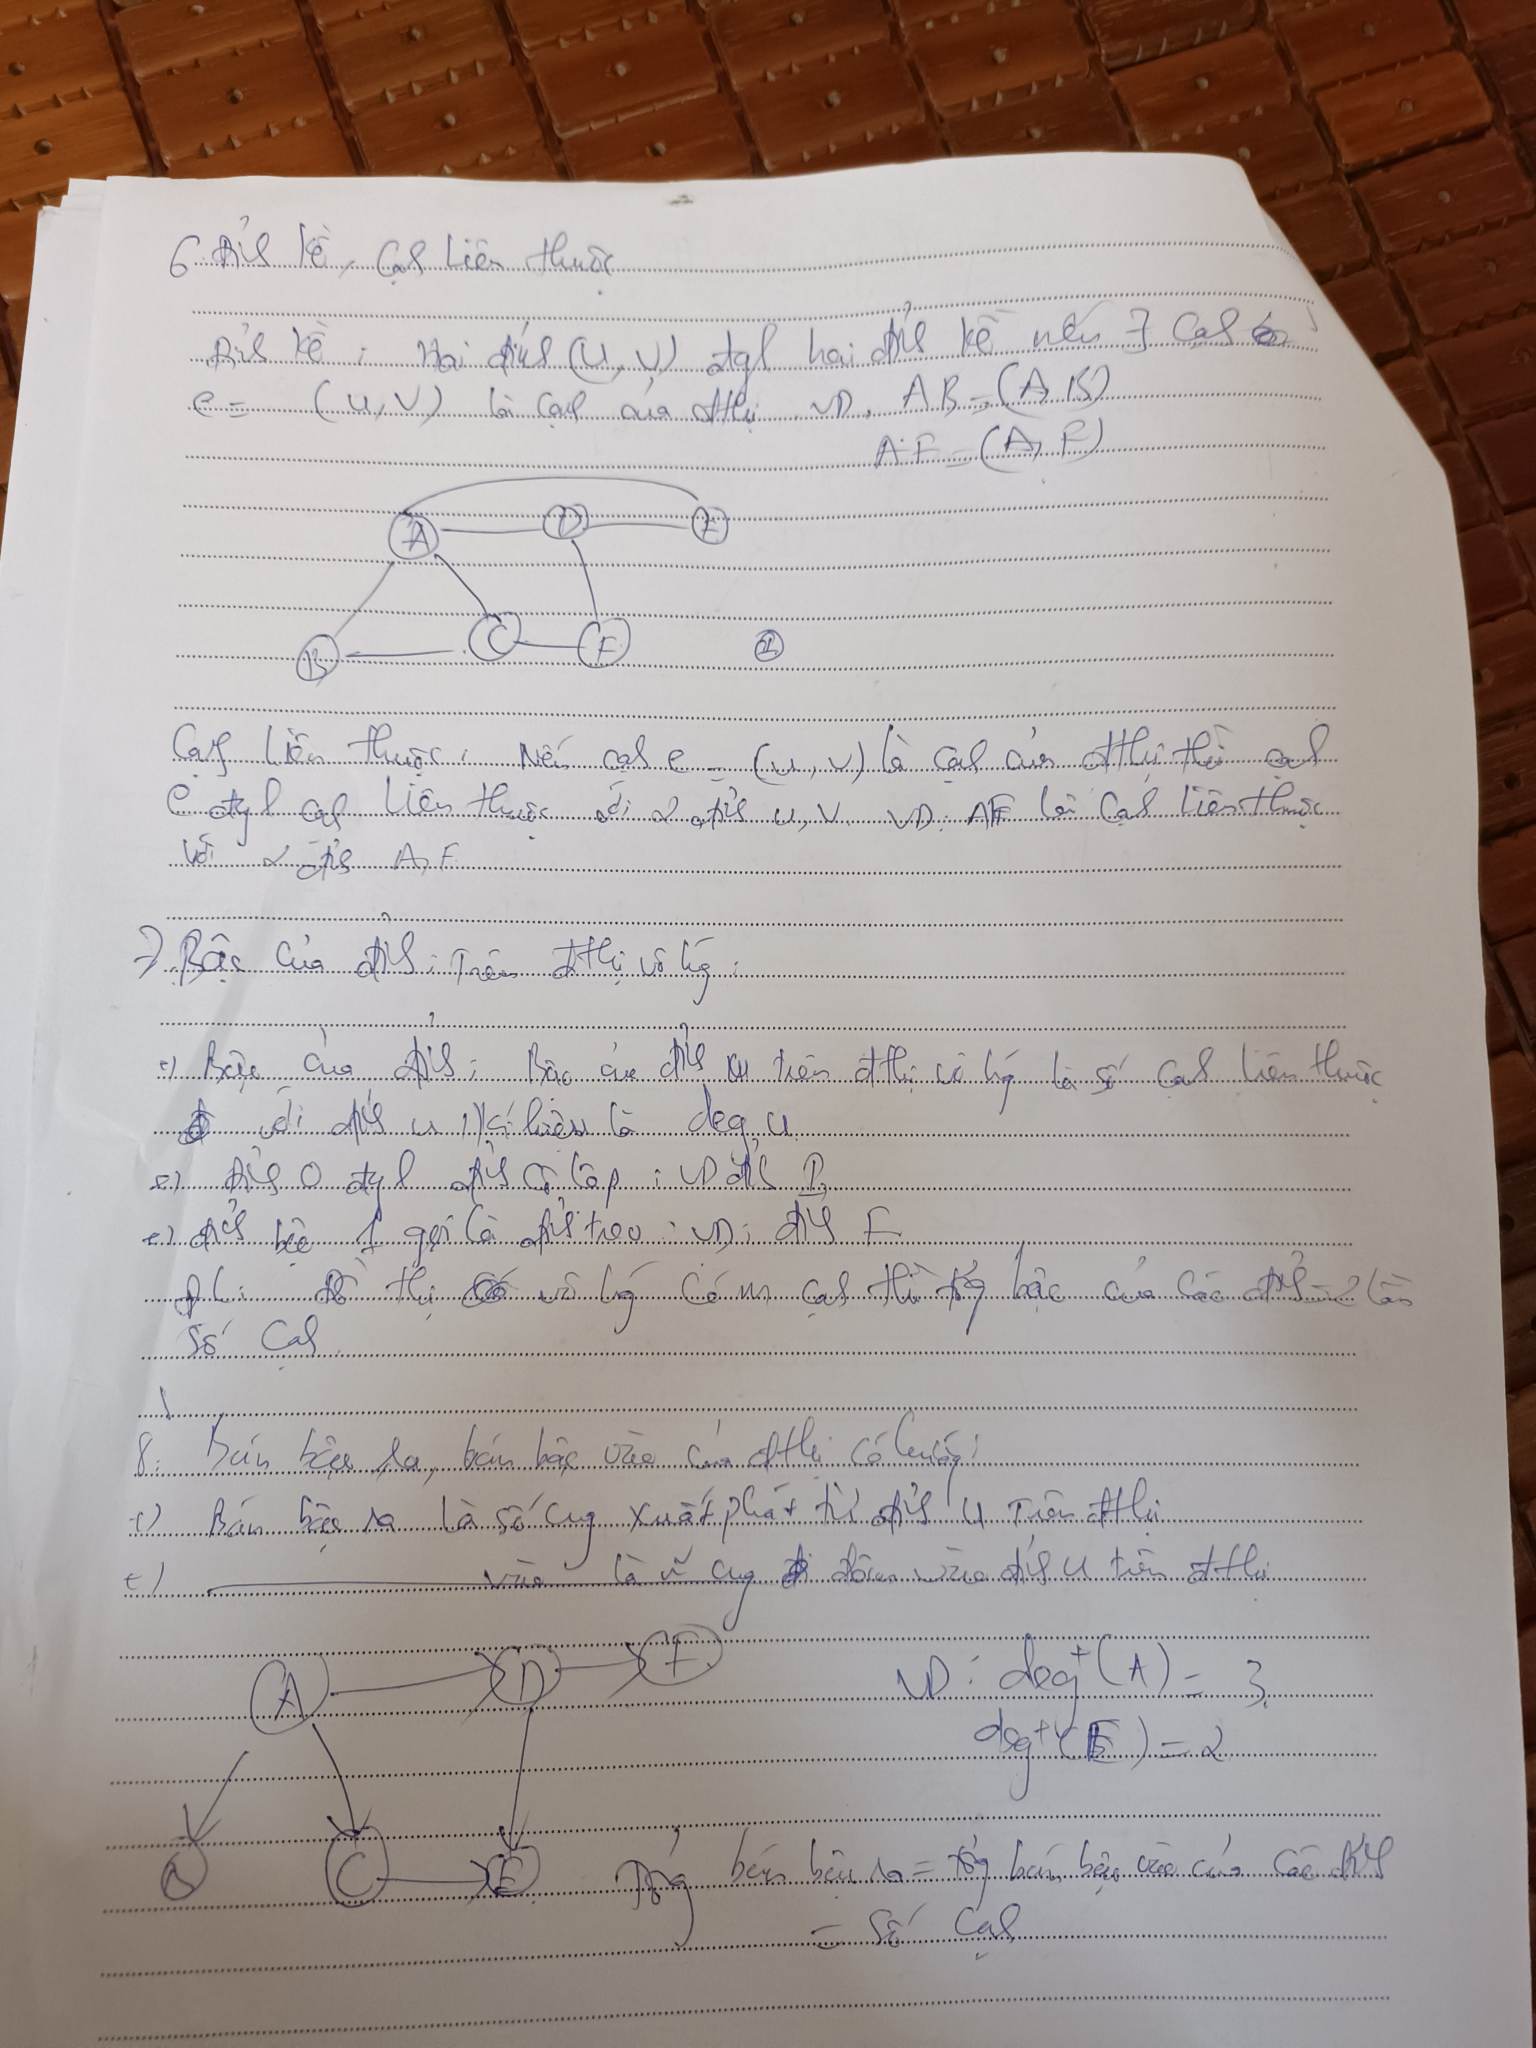 6. Đỉh kề, cạh liên thuộc
Đỉh kề: Hai đỉh (u, v) đgl hai đỉh kề nếu ∃ cạh
e = (u, v) là cạh của đthị. VD. AB = (A, B)
AF = (A, F)
A D F
B C E I
Cạh liên thuộc: Nếu cạh e = (u, v) là cạh của đthị thì cạh
e đgl cạh liên thuộc với 2 đỉh u, v. VD: AF là cạh liên thuộc
với 2 đỉh A, F
7. Bậc của đỉh: Trên đthị vô hg:
+) Bậc của đỉh: Bậc của đỉh u trên đthị vô hg là số cạh liên thuộc
với đỉh u, kí hiệu là deg u
+) Đỉh 0 đgl đỉh cô lập: VD đỉh I
+) đỉh bậc 1 gọi là đỉh treo: VD: đỉh F
đl: đồ thị vô hg có m cạh thì tổg bậc của các đỉh = 2 lần
số cạh.
8. Bán bậc ra, bán bậc vào của đthị có hướg:
+) Bán bậc ra là số cug xuất phát từ đỉh u trên đthị
+) vào là cug đi vào đỉh u trên đthị
A D F
VD: deg⁺(A) = 3.
deg⁺(E) = 2
B C E
Tổg bán bậc ra = tổg bán bậc vào của các đỉh
= số cạh